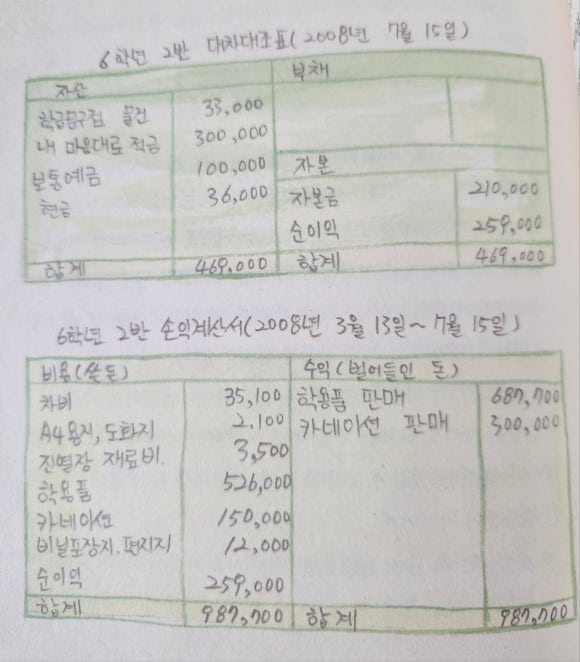 6학년 2반 대차대조표(2008년 7월 15일)
자산 부채
학급문구점 물건 33,000
내 마음대로 적금 300,000
보통예금 100,000 자본
현금 36,000 자본금 210,000
순이익 259,000
합계 469,000 합계 469,000
6학년 2반 손익계산서(2008년 3월 13일~7월 15일)
비용(쓴돈) 수익(벌어들인 돈)
차비 35,100 학용품 판매 687,700
A4용지, 도화지 2,100 카네이션 판매 300,000
진열장 재료비. 3,500
학용품 526,000
카네이션 150,000
비닐포장지.편지지 12,000
순이익 259,000
합계 987,700 합계 987,700